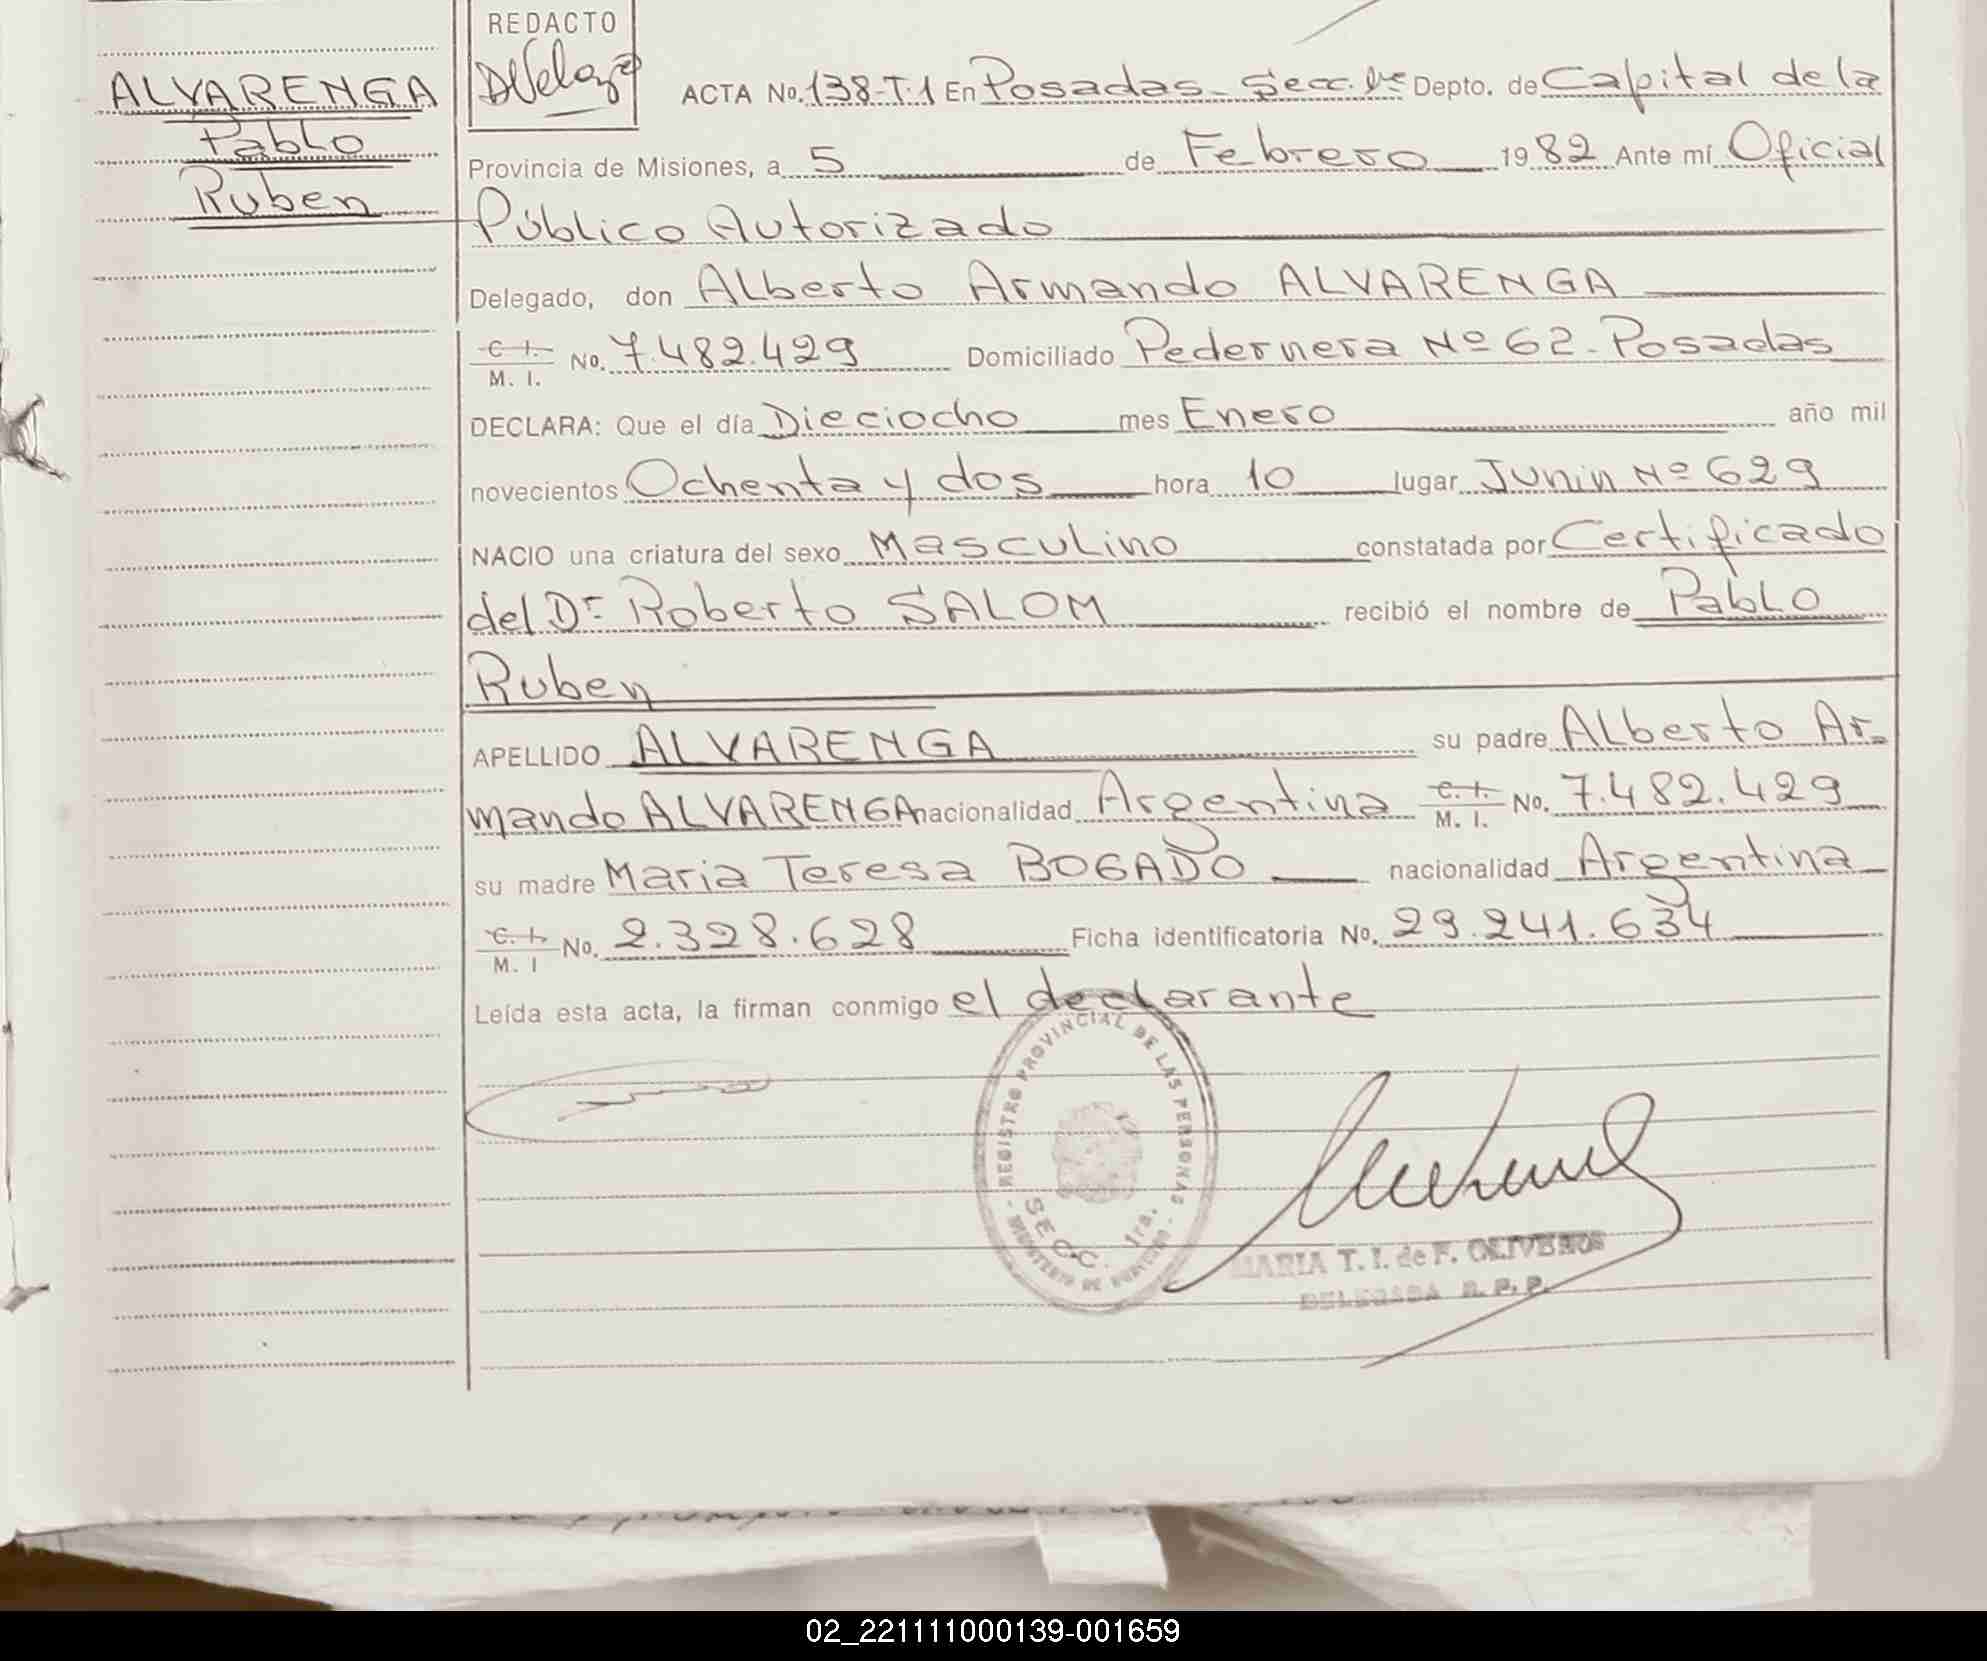 ALVARENGA
Pablo
Ruben
REDACTO
ACTA No. 138-T.1 En Posadas - Secc. 1ra Depto. de Capital de la
Provincia de Misiones, a 5 de Febrero 1982 Ante mí Oficial
Público Autorizado
Delegado, don Alberto Armando ALVARENGA
C. I.
M. I. No. 7.482.429 Domiciliado Pedernera Nº 62 - Posadas
DECLARA: Que el día Dieciocho mes Enero año mil
novecientos Ochenta y dos hora 10 lugar Junin Nº 629
NACIO una criatura del sexo Masculino constatada por Certificado
del Dr Roberto SALOM recibió el nombre de Pablo
Ruben
APELLIDO ALVARENGA su padre Alberto Ar-
mando ALVARENGA nacionalidad Argentina C. I. M. I. No. 7.482.429
su madre Maria Teresa BOGADO nacionalidad Argentina
C. I. M. I No. 2.328.628 Ficha identificatoria No. 29.241.634
Leída esta acta, la firman conmigo el declarante
REGISTRO PROVINCIAL DE LAS PERSONAS
SECC. 1ra.
MARIA T. I. de F. OLIVEROS
DELEGADA R. P. P.
02_221111000139-001659